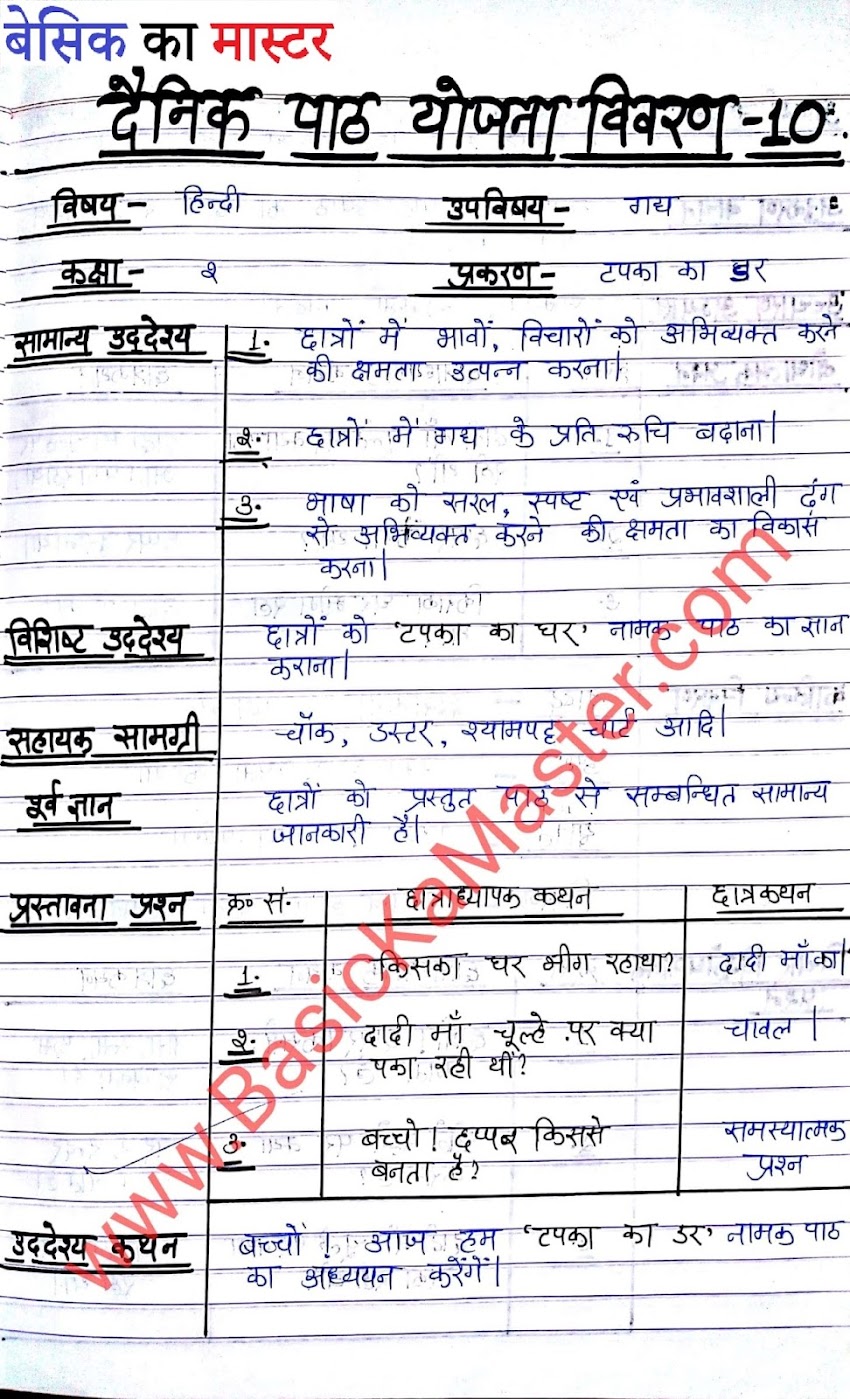 बेसिक का मास्टर
दैनिक पाठ योजना विवरण -10
विषय - हिन्दी उपविषय - गद्य
कक्षा - २ प्रकरण - टपका का डर
सामान्य उद्देश्य 1. छात्रों में भावों, विचारों को अभिव्यक्त करने
की क्षमता उत्पन्न करना।
२. छात्रों में गद्य के प्रति रुचि बढ़ाना।
3. भाषा को सरल, स्पष्ट एवं प्रभावशाली ढंग
से अभिव्यक्त करने की क्षमता का विकास
करना।
विशिष्ट उद्देश्य छात्रों को 'टपका का घर' नामक पाठ का ज्ञान
कराना।
सहायक सामग्री चॉक, डस्टर, श्यामपट्ट चार्ट आदि।
पूर्व ज्ञान छात्रों को प्रस्तुत पाठ से सम्बन्धित सामान्य
जानकारी है।
प्रस्तावना प्रश्न क्र० सं. छात्राध्यापक कथन छात्रकथन
1. किसका घर भीग रहाथा? दादी माँ का।
२. दादी माँ चूल्हे पर क्या चावल।
पका रही थीं?
3. बच्चो! छप्पर किससे समस्यात्मक
बनता है? प्रश्न
उद्देश्य कथन बच्चों! आज हम 'टपका का डर' नामक पाठ
का अध्ययन करेंगें।
www.BasicKaMaster.com